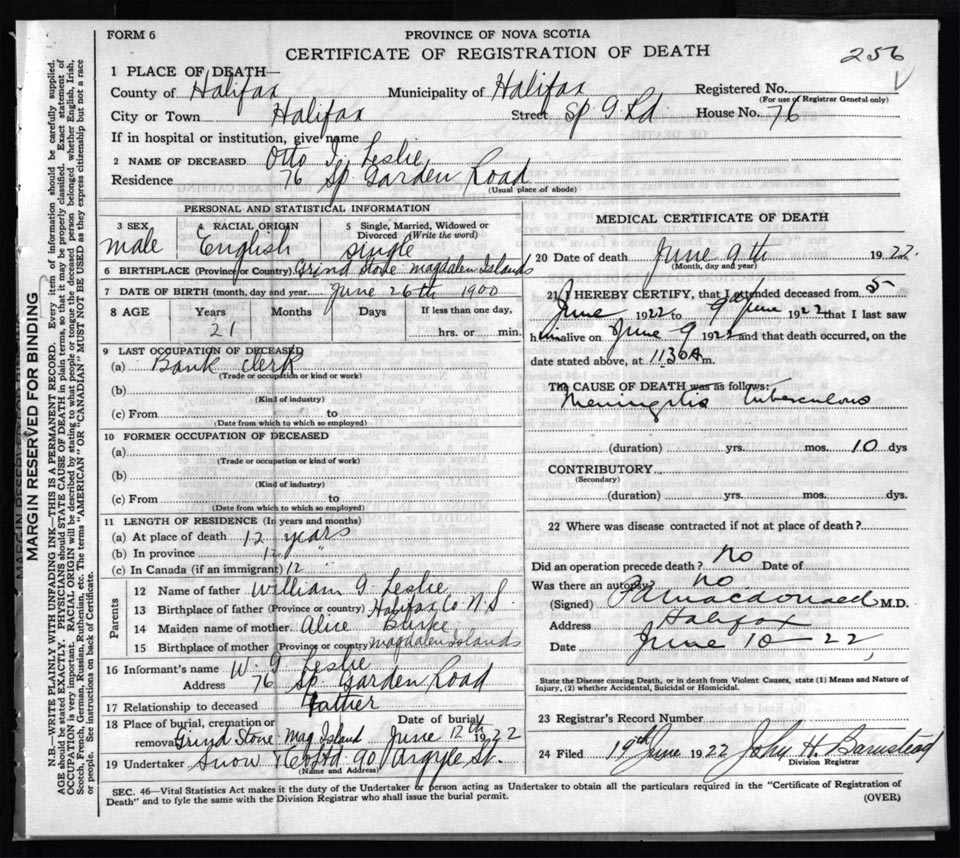 FORM 6
PROVINCE OF NOVA SCOTIA
CERTIFICATE OF REGISTRATION OF DEATH
256
1 PLACE OF DEATH—
County of Halifax Municipality of Halifax Registered No.
(For use of Registrar General only)
City or Town Halifax Street Sp G Rd House No. 76
If in hospital or institution, give name
2 NAME OF DECEASED Otto Leslie
Residence 76 Sp. Garden Road
(Usual place of abode)
PERSONAL AND STATISTICAL INFORMATION
3 SEX male
4 RACIAL ORIGIN English
5 Single, Married, Widowed or Divorced (Write the word) Single
6 BIRTHPLACE (Province or Country) Grind Stone Magdalen Islands
7 DATE OF BIRTH (month, day and year) June 26th 1900
8 AGE Years Months Days If less than one day,
21 hrs. or min.
9 LAST OCCUPATION OF DECEASED
(a) Bank Clerk
(Trade or occupation or kind or work)
(b)
(Kind of industry)
(c) From to
(Date from which to which so employed)
10 FORMER OCCUPATION OF DECEASED
(a)
(Trade or occupation or kind of work)
(b)
(Kind of industry)
(c) From to
(Date from which to which so employed)
11 LENGTH OF RESIDENCE (In years and months)
(a) At place of death 12 years
(b) In province 12 "
(c) In Canada (if an immigrant) 12
Parents
12 Name of father William G. Leslie
13 Birthplace of father (Province or country) Halifax Co N.S
14 Maiden name of mother Alice Burke
15 Birthplace of mother (Province or country) Magdalen Islands
16 Informant's name W. G. Leslie
Address 76 Sp. Garden Road
17 Relationship to deceased Father
18 Place of burial, cremation or removal Grind Stone Mag Island Date of burial June 12th 1922
19 Undertaker Snow & Co Ltd 90 Argyle St.
(Name and Address)
MEDICAL CERTIFICATE OF DEATH
20 Date of death June 9th 1922.
(Month, day and year)
21 I HEREBY CERTIFY, that I attended deceased from 5
June 1922 to 9 June 1922 that I last saw
him alive on June 9 1922 and that death occurred, on the
date stated above, at 1130 A m.
The CAUSE OF DEATH was as follows:
Meningitis tuberculous
(duration) yrs. mos. 10 dys
CONTRIBUTORY
(Secondary)
(duration) yrs. mos. dys.
22 Where was disease contracted if not at place of death?
Did an operation precede death? No Date of
Was there an autopsy? No
(Signed) Macdonald M.D.
Address Halifax
Date June 10—22
State the Disease causing Death, or in death from Violent Causes, state (1) Means and Nature of
Injury, (2) whether Accidental, Suicidal or Homicidal.
23 Registrar's Record Number
24 Filed 19th June 1922 John H. Barnstead
Division Registrar
SEC. 46—Vital Statistics Act makes it the duty of the Undertaker or person acting as Undertaker to obtain all the particulars required in the "Certificate of Registration of
Death" and to fyle the same with the Division Registrar who shall issue the burial permit.
(OVER)
MARGIN RESERVED FOR BINDING
N.B.—WRITE PLAINLY WITH UNFADING INK—THIS IS A PERMANENT RECORD. Every item of information should be carefully supplied.
AGE should be stated EXACTLY. PHYSICIANS should STATE CAUSE OF DEATH in plain terms, so that it may be properly classified. Exact statement of
OCCUPATION is very important. RACIAL ORIGIN will be described by stating to what people or tongue the deceased person belonged whether English, Irish,
Scotch, French, German, Russian, Ruthenian, etc. The terms "AMERICAN" OR "CANADIAN" MUST NOT BE USED as they express citizenship but not a race
or people. See instructions on back of Certificate.